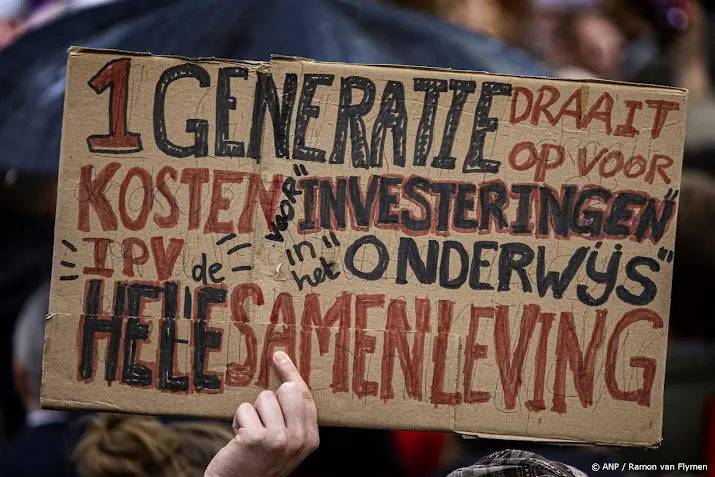 1 GENERATIE DRAAIT
OP VOOR
KOSTEN VOOR "INVESTERINGEN"
IPV de "in het ONDERWIJS"
HELE SAMENLEVING
© ANP / Ramon van Flymen